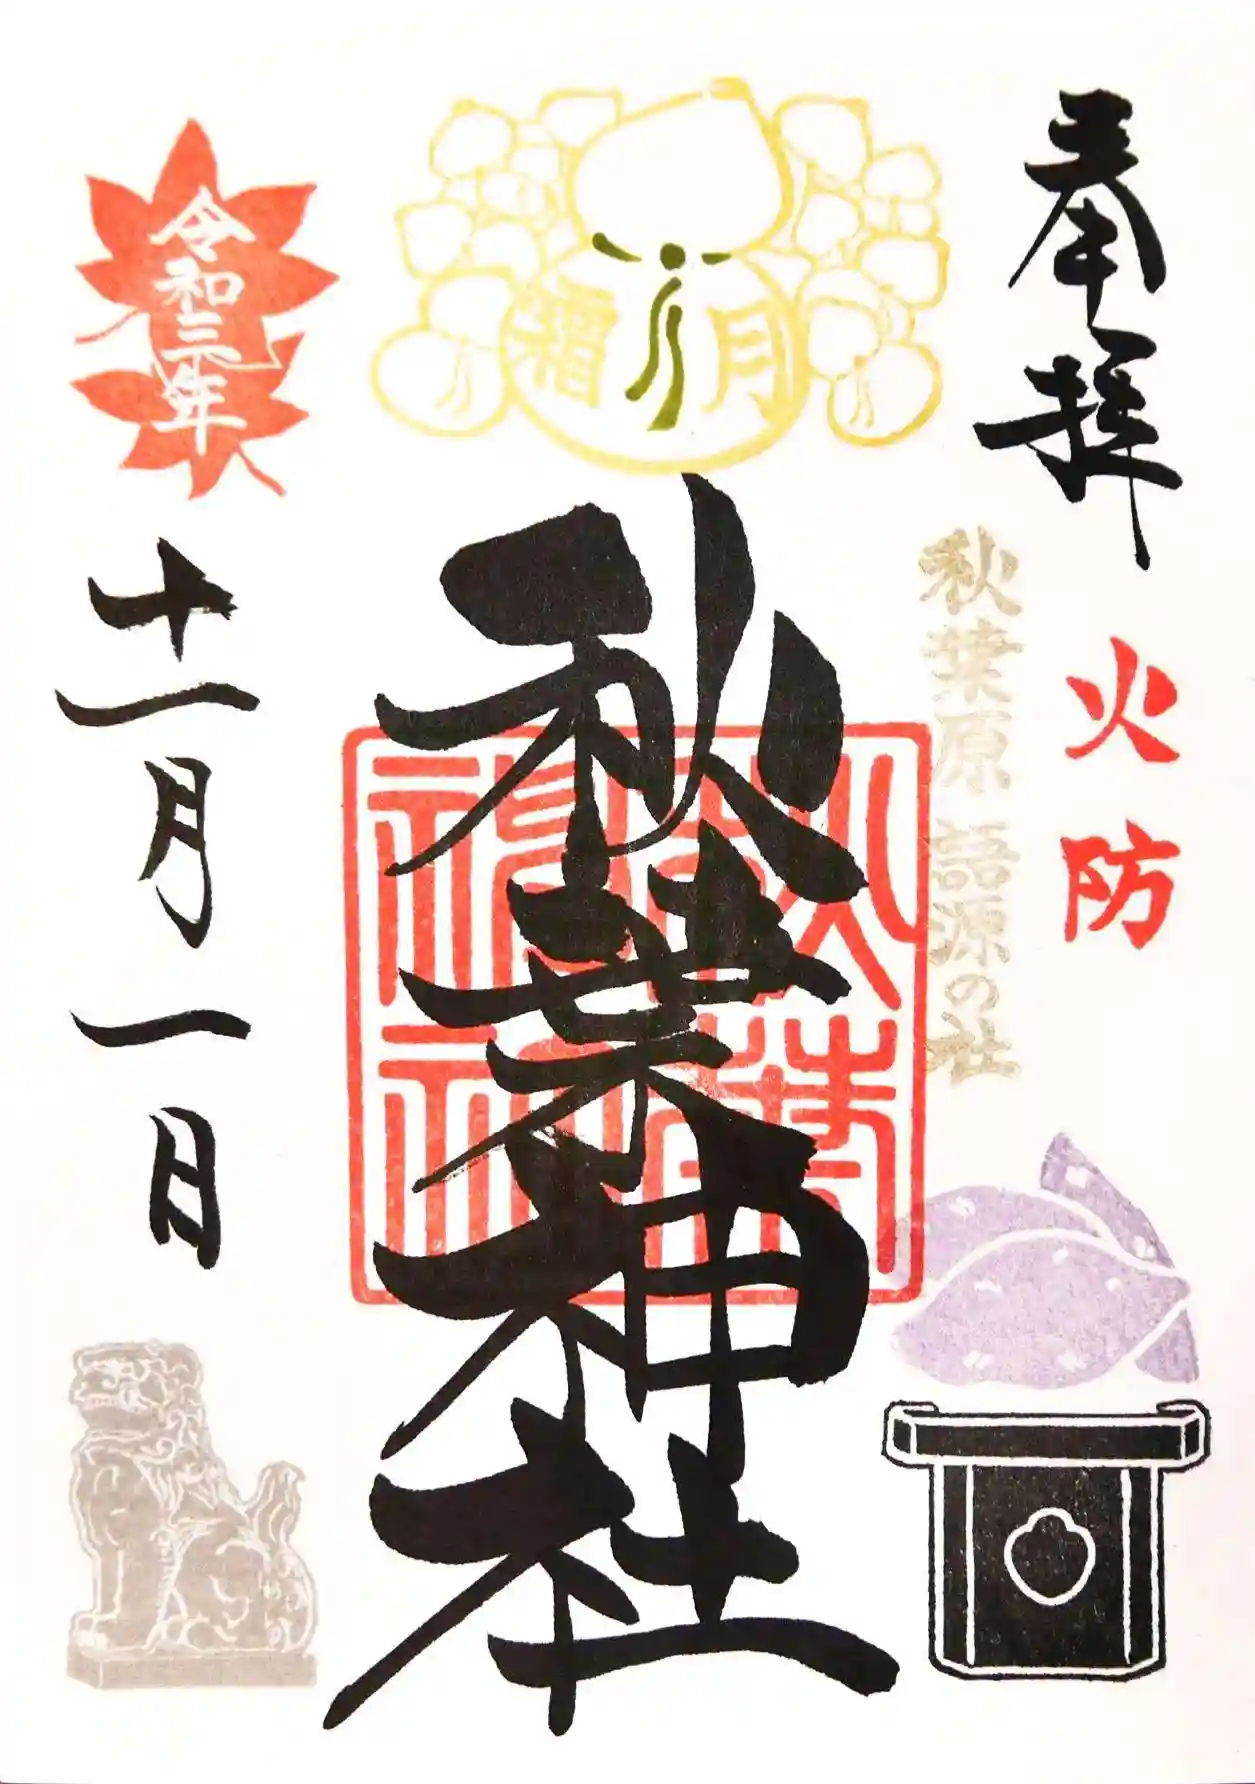 奉拝
火防
秋葉原 語源の社
霜月
秋葉神社
令和三年
十一月一日